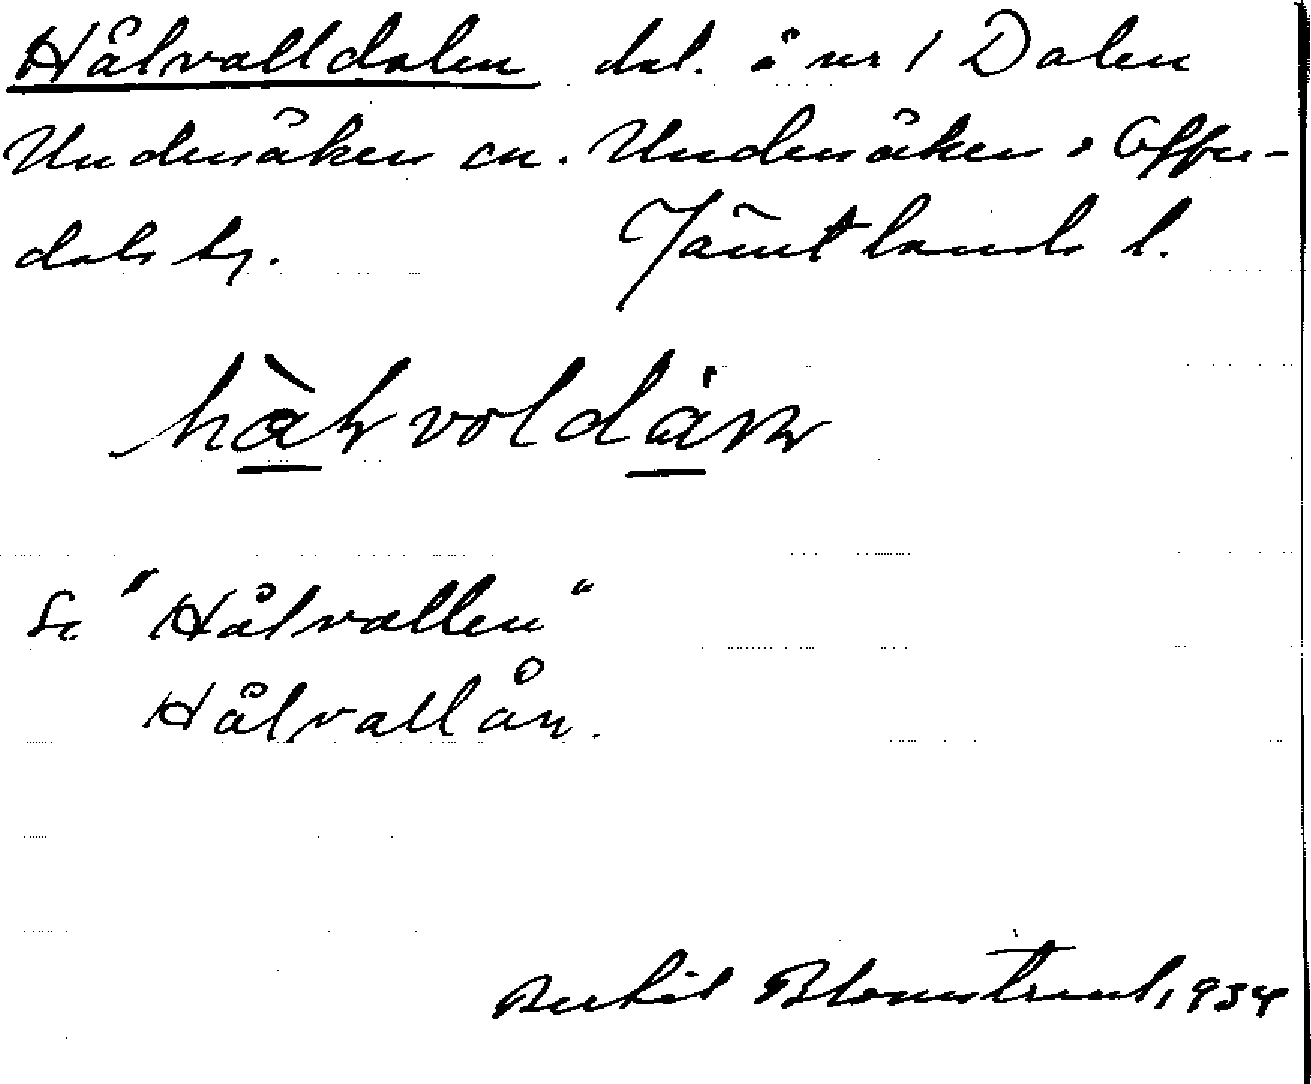 Hålvalldalen dal. å nr 1 Dalen
Undersåker sn. Undersåker o Offer-
dals tg. Jämtlands l.
Se "Hålvallen"
Hålvallån.
Bertil Blomstrand, 1934